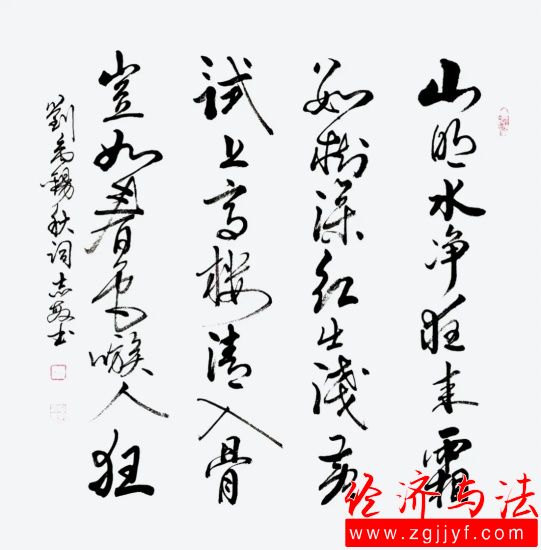 山明水净狂来霜
數樹深红出淺黄
試上高樓清入骨
豈如春色嗾人狂
劉禹錫秋词志敏书
经济与法
www.zgjjyf.com